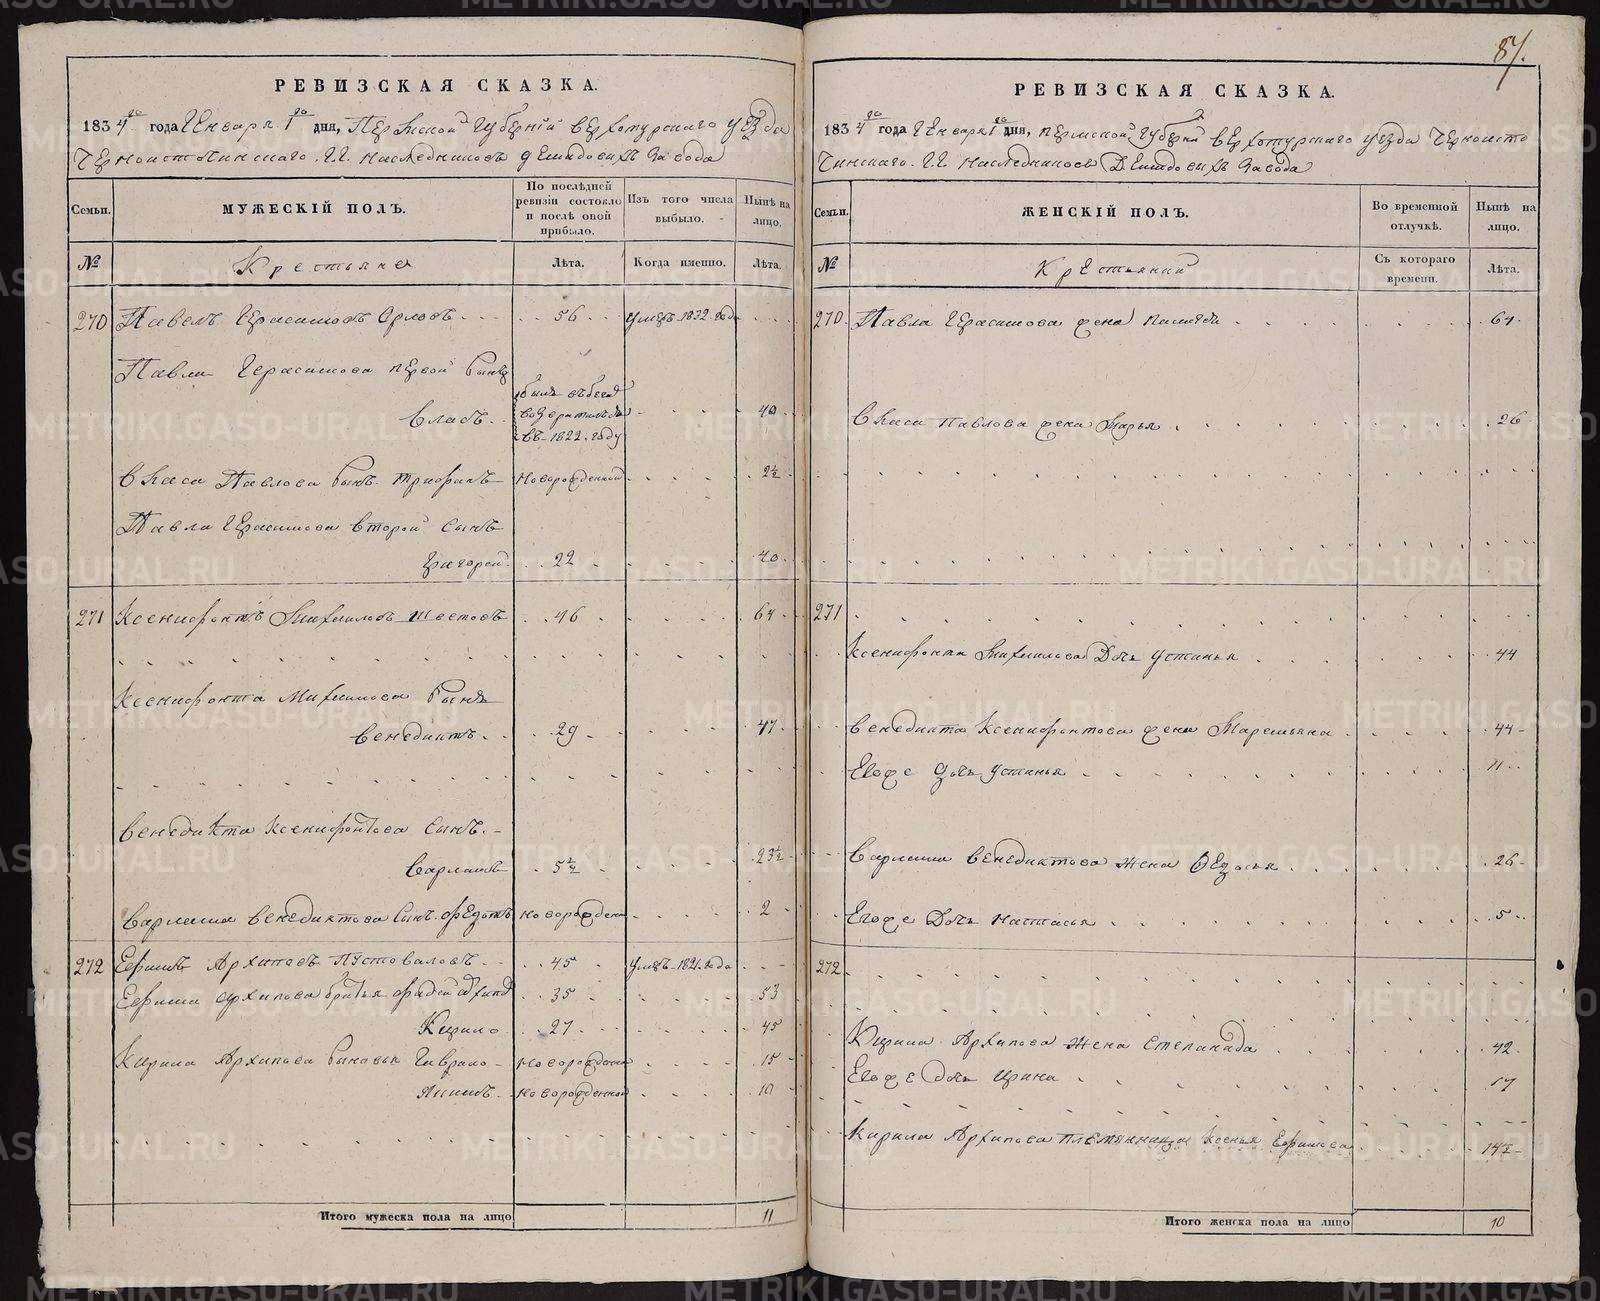 87.
РЕВИЗСКАЯ СКАЗКА.
1834го года Генваря 1го дня, Пермской Губернии верхотурского уезда
Черноисточинского Г.Г. наследников демидовыхъ завода
Семьи.
МУЖЕСКІЙ ПОЛЪ.
По послѣдней ревизіи состояло и послѣ оной прибыло.
Изъ того числа выбыло.
Нынѣ на лицо.
№
Крестьяне
Лѣта.
Когда именно.
Лѣта.
270 Павелъ Герасимовъ Орловъ 56 умеръ 1832 года
Павла Герасимова первой сынъ
Власъ былъ въ бегах возвратился въ 1822 году 40
Власа Павлова сынъ Трифанъ новорожденной 2½
Павла Герасимова второй сынъ
Григорей 22 40
271 Ксенофонтъ Михаиловъ Шестовъ 46 64
Ксенофонта Михаилова сынъ
Венедиктъ 29 47
Венедикта Ксенофонтова сынъ
Варламъ 5½ 23½
Варлама Венедиктова сынъ Федотъ новорожден 2
272 Ефимъ Архиповъ Пустоваловъ 45 умеръ 1821 года
Ефима Архипова братья Фадей 35 53
Кирило 27 45
Кирила Архипова сыновья Гаврило новорожденой 15
Якимъ новорожденной 10
Итого мужеска пола на лицо 11
РЕВИЗСКАЯ СКАЗКА.
1834го года Генваря 1го дня, пермской Губернии верхотурского уезда Черноисто
чинского Г.Г. наследников Демидовыхъ завода
Семьи.
ЖЕНСКІЙ ПОЛЪ.
Во временной отлучкѣ.
Нынѣ на лицо.
№
Крестьянки
Съ котораго времени.
Лѣта.
270 Павла Герасимова жена 64
Власа Павлова жена Марья 26
271
Ксенофонта Михаилова Дочь Устинья 44
Венедикта Ксенофонтова жена Маремьяна 44
Егоже дочь Устинья 11
Варлама Венедиктова жена Федосья 26
Егоже Дочь Настасья 5
272
Кирила Архипова жена Степанида 42
Егоже дочь Ирина 17
Кирила Архипова племянница Ксенья Ефимова 14½
Итого женска пола на лицо 10
METRIKI.GASO-URAL.RU